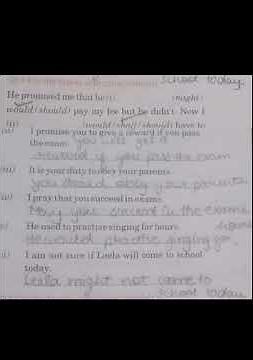 school today.
He promised me that he (might/
would/should) pay my fee but he didn't. Now I
(would/shall/should) have to
I promise you to give a reward if you pass
the exam. you will get a
reward if you pass the exam
It is your duty to obey your parents.
you should obey your parents
I pray that you succeed in exams.
May you succeed in the exams
He used to practise singing for hours.
He would practise singing for
hours
I am not sure if Leela will come to school
today.
Leela might not come to
school today